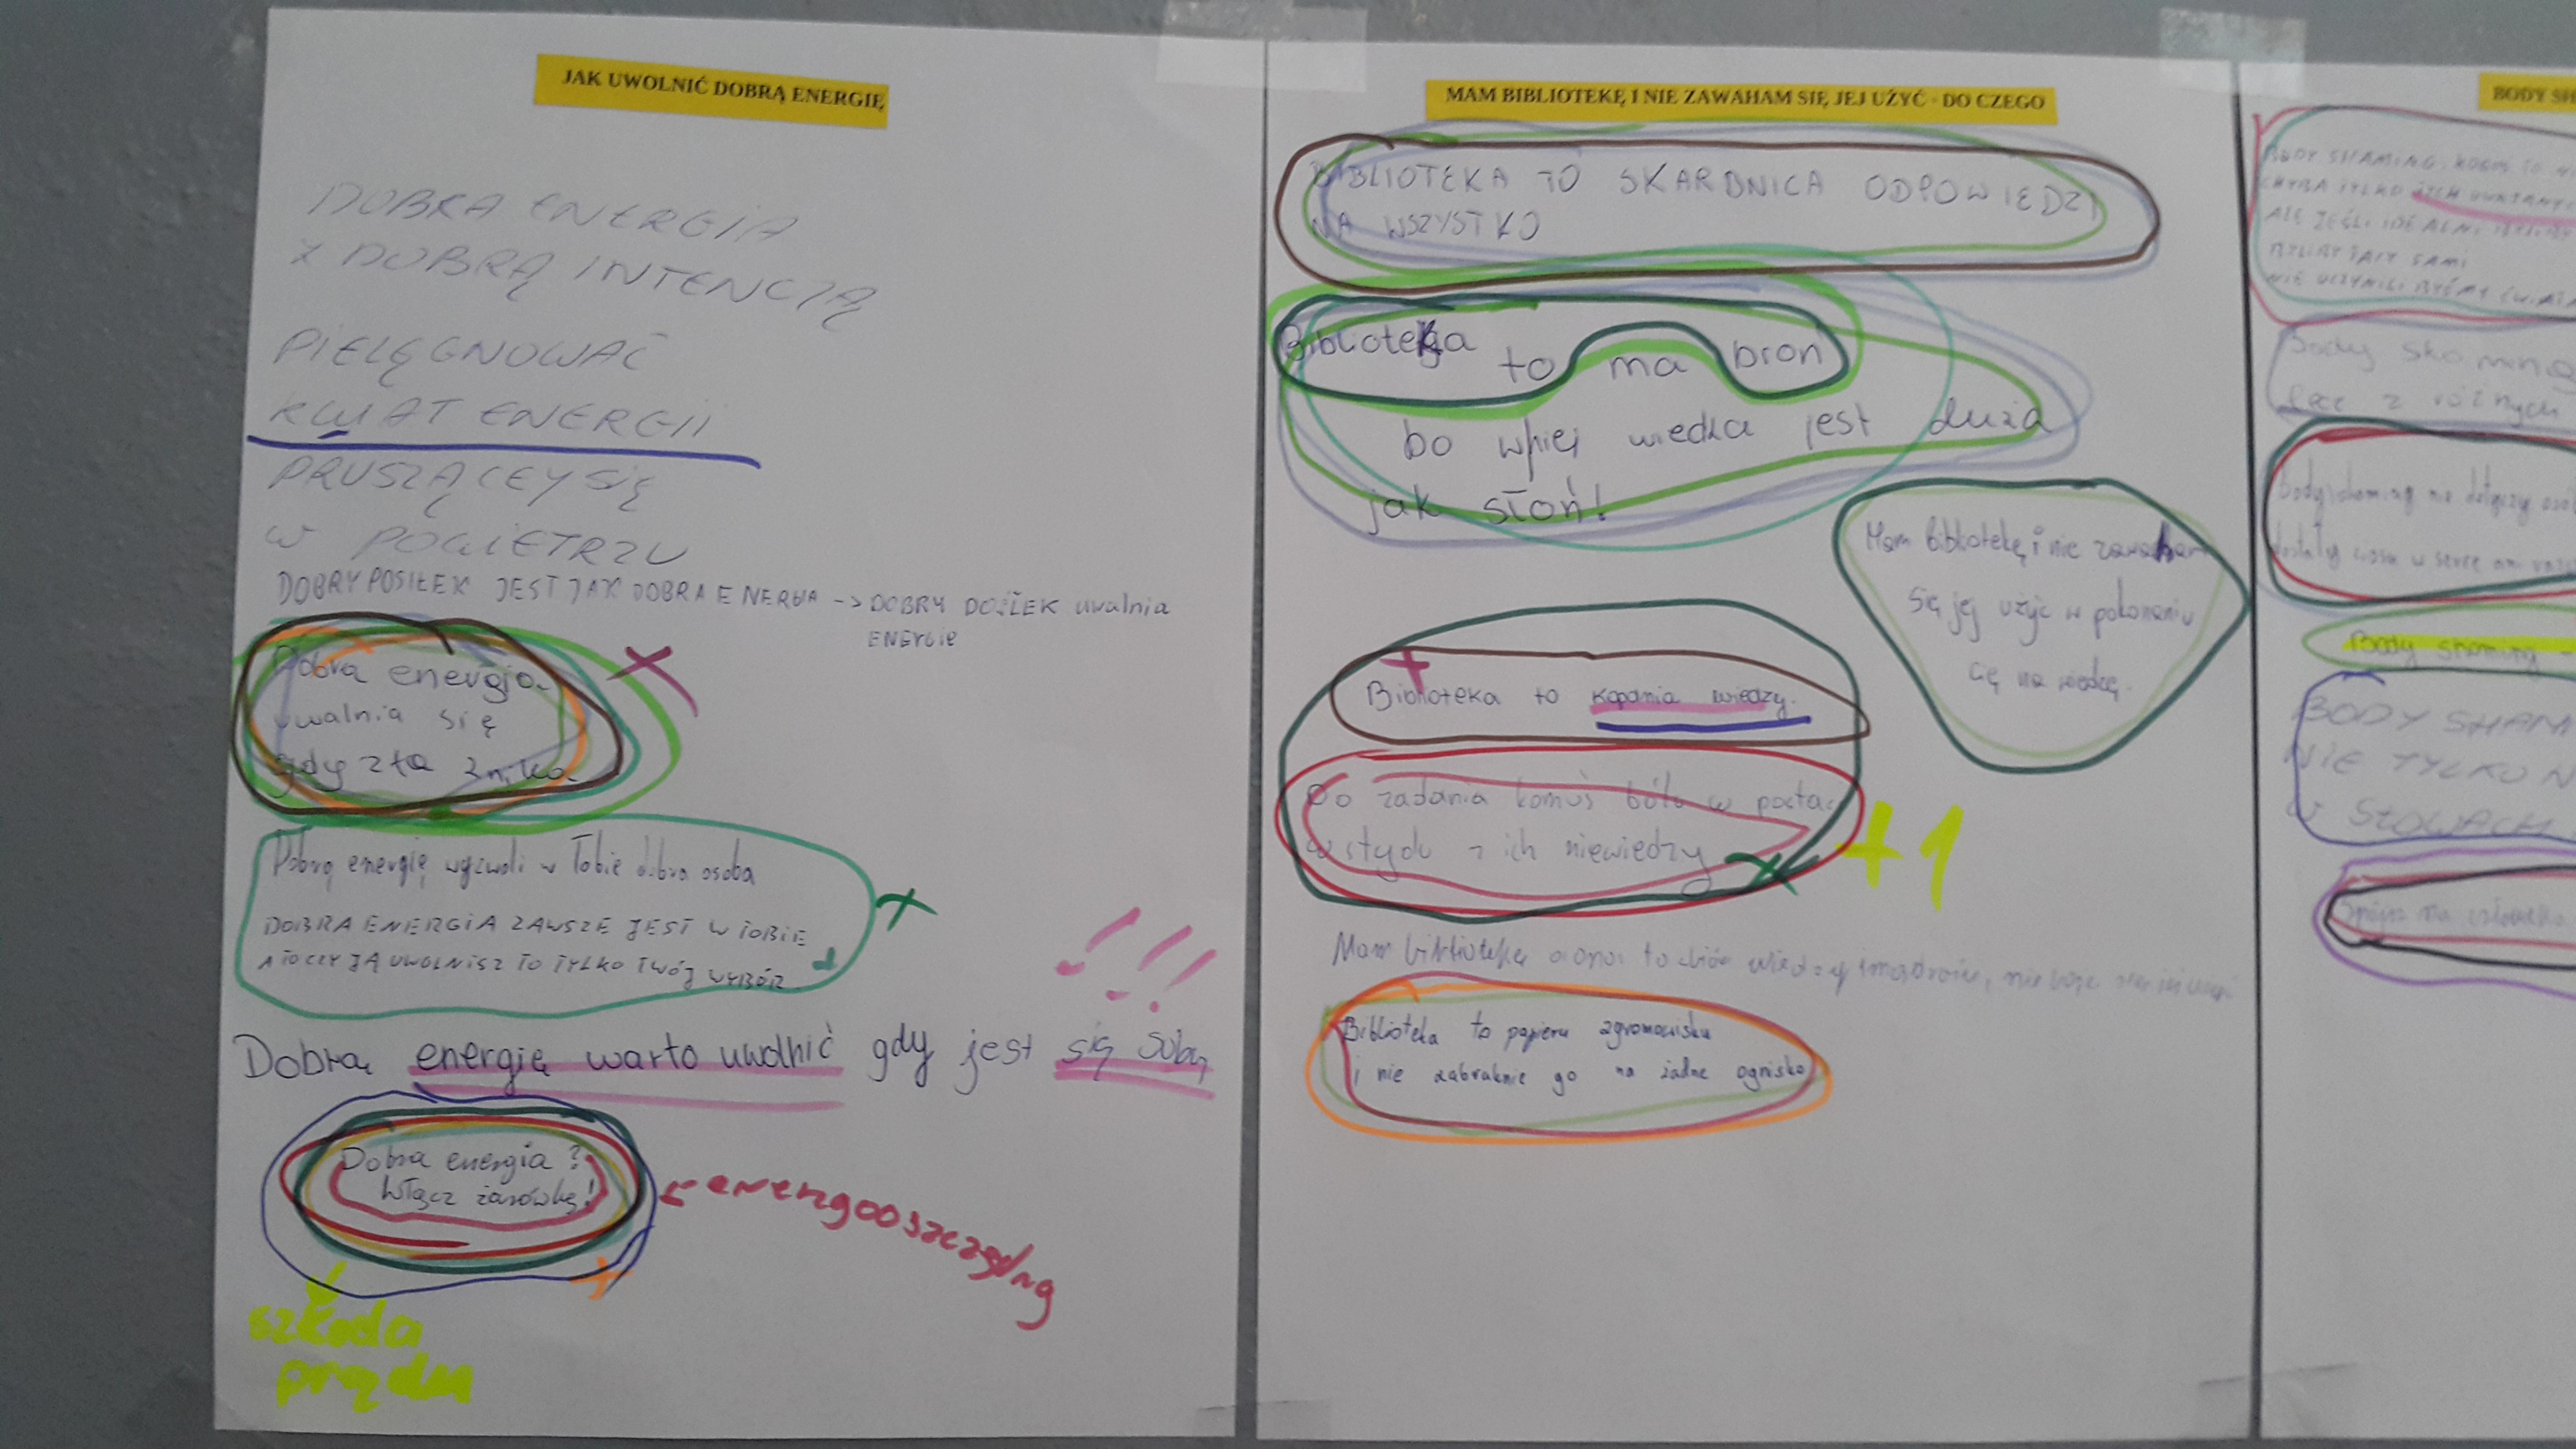 JAK UWOLNIĆ DOBRĄ ENERGIĘ
DOBRA ENERGIA
Z DOBRĄ INTENCJĄ
PIELĘGNOWAĆ
KWIAT ENERGII
PRUSZĄCEY SIĘ
W POWIETRZU
DOBRY POSIŁEK JEST JAK DOBRA ENERGIA -> DOBRY uwalnia
ENERGIE
Dobra energia
uwalnia się
gdy zła znika
Dobrą energię wyzwoli w Tobie dobra osoba
DOBRA ENERGIA ZAWSZE JEST W TOBIE
A TO CZY JĄ UWOLNISZ TO TYLKO TWÓJ WYBÓR.
!!!
Dobrą energię warto uwolnić gdy jest się sobą
Dobra energia?
Włącz żarówkę!
← energooszczędną
szkoda
prądu
MAM BIBLIOTEKĘ I NIE ZAWAHAM SIĘ JEJ UŻYĆ - DO CZEGO
BIBLIOTEKA TO SKARBNICA ODPOWIEDZI
NA WSZYSTKO
Biblioteka to ma broń
bo w niej wiedza jest duża
jak słoń!
Mam bibliotekę i nie zawaham
się jej użyć w pokonaniu
cię na wiedzę.
Biblioteka to kopania wiedzy.
Do zadania komuś bólu w postaci
wstydu z ich niewiedzy
+1
Mam bibliotekę a ona to zbiór wiedzy i mądrości, nie
Biblioteka to papieru zgromowisku
i nie zabraknie go na żadne ognisko
BODY SH
BODY SHAMING.
CHYBA TYLKO
ALE JEŚLI
SAMI
NIE UCZYNILI BYŚMY
Body
z różnych
Body shaming nie dotyczy
w serce
Body shaming -
BODY SHAM
NIE TYLKO N
W SŁOWACH
Spójrz na człowieka